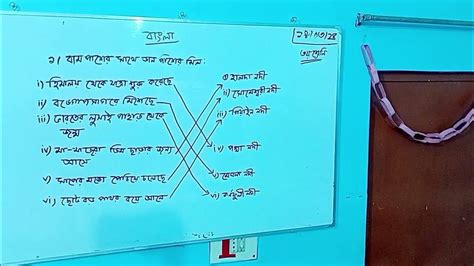 বাংলা
২। বাম পাশের সাথে ডান পাশের মিল:
i) হিমালয় থেকে যাত্রা শুরু করেছে
ii) বঙ্গোপসাগরে মিশেছে
iii) ভারতের লুসাই পাহাড় থেকে
জন্ম
iv) মা-মাছেরা ডিম ছাড়ার জন্য
আসে
v) সাপের মতো পেঁচিয়ে চলেছে
vi) ছোট বড় পাথর বয়ে আনে
i) হালদা নদী
ii) সোমেশ্বরী নদী
iii)
iv) পদ্মা নদী
v) মেঘনা নদী
vi) কর্ণফুলী নদী